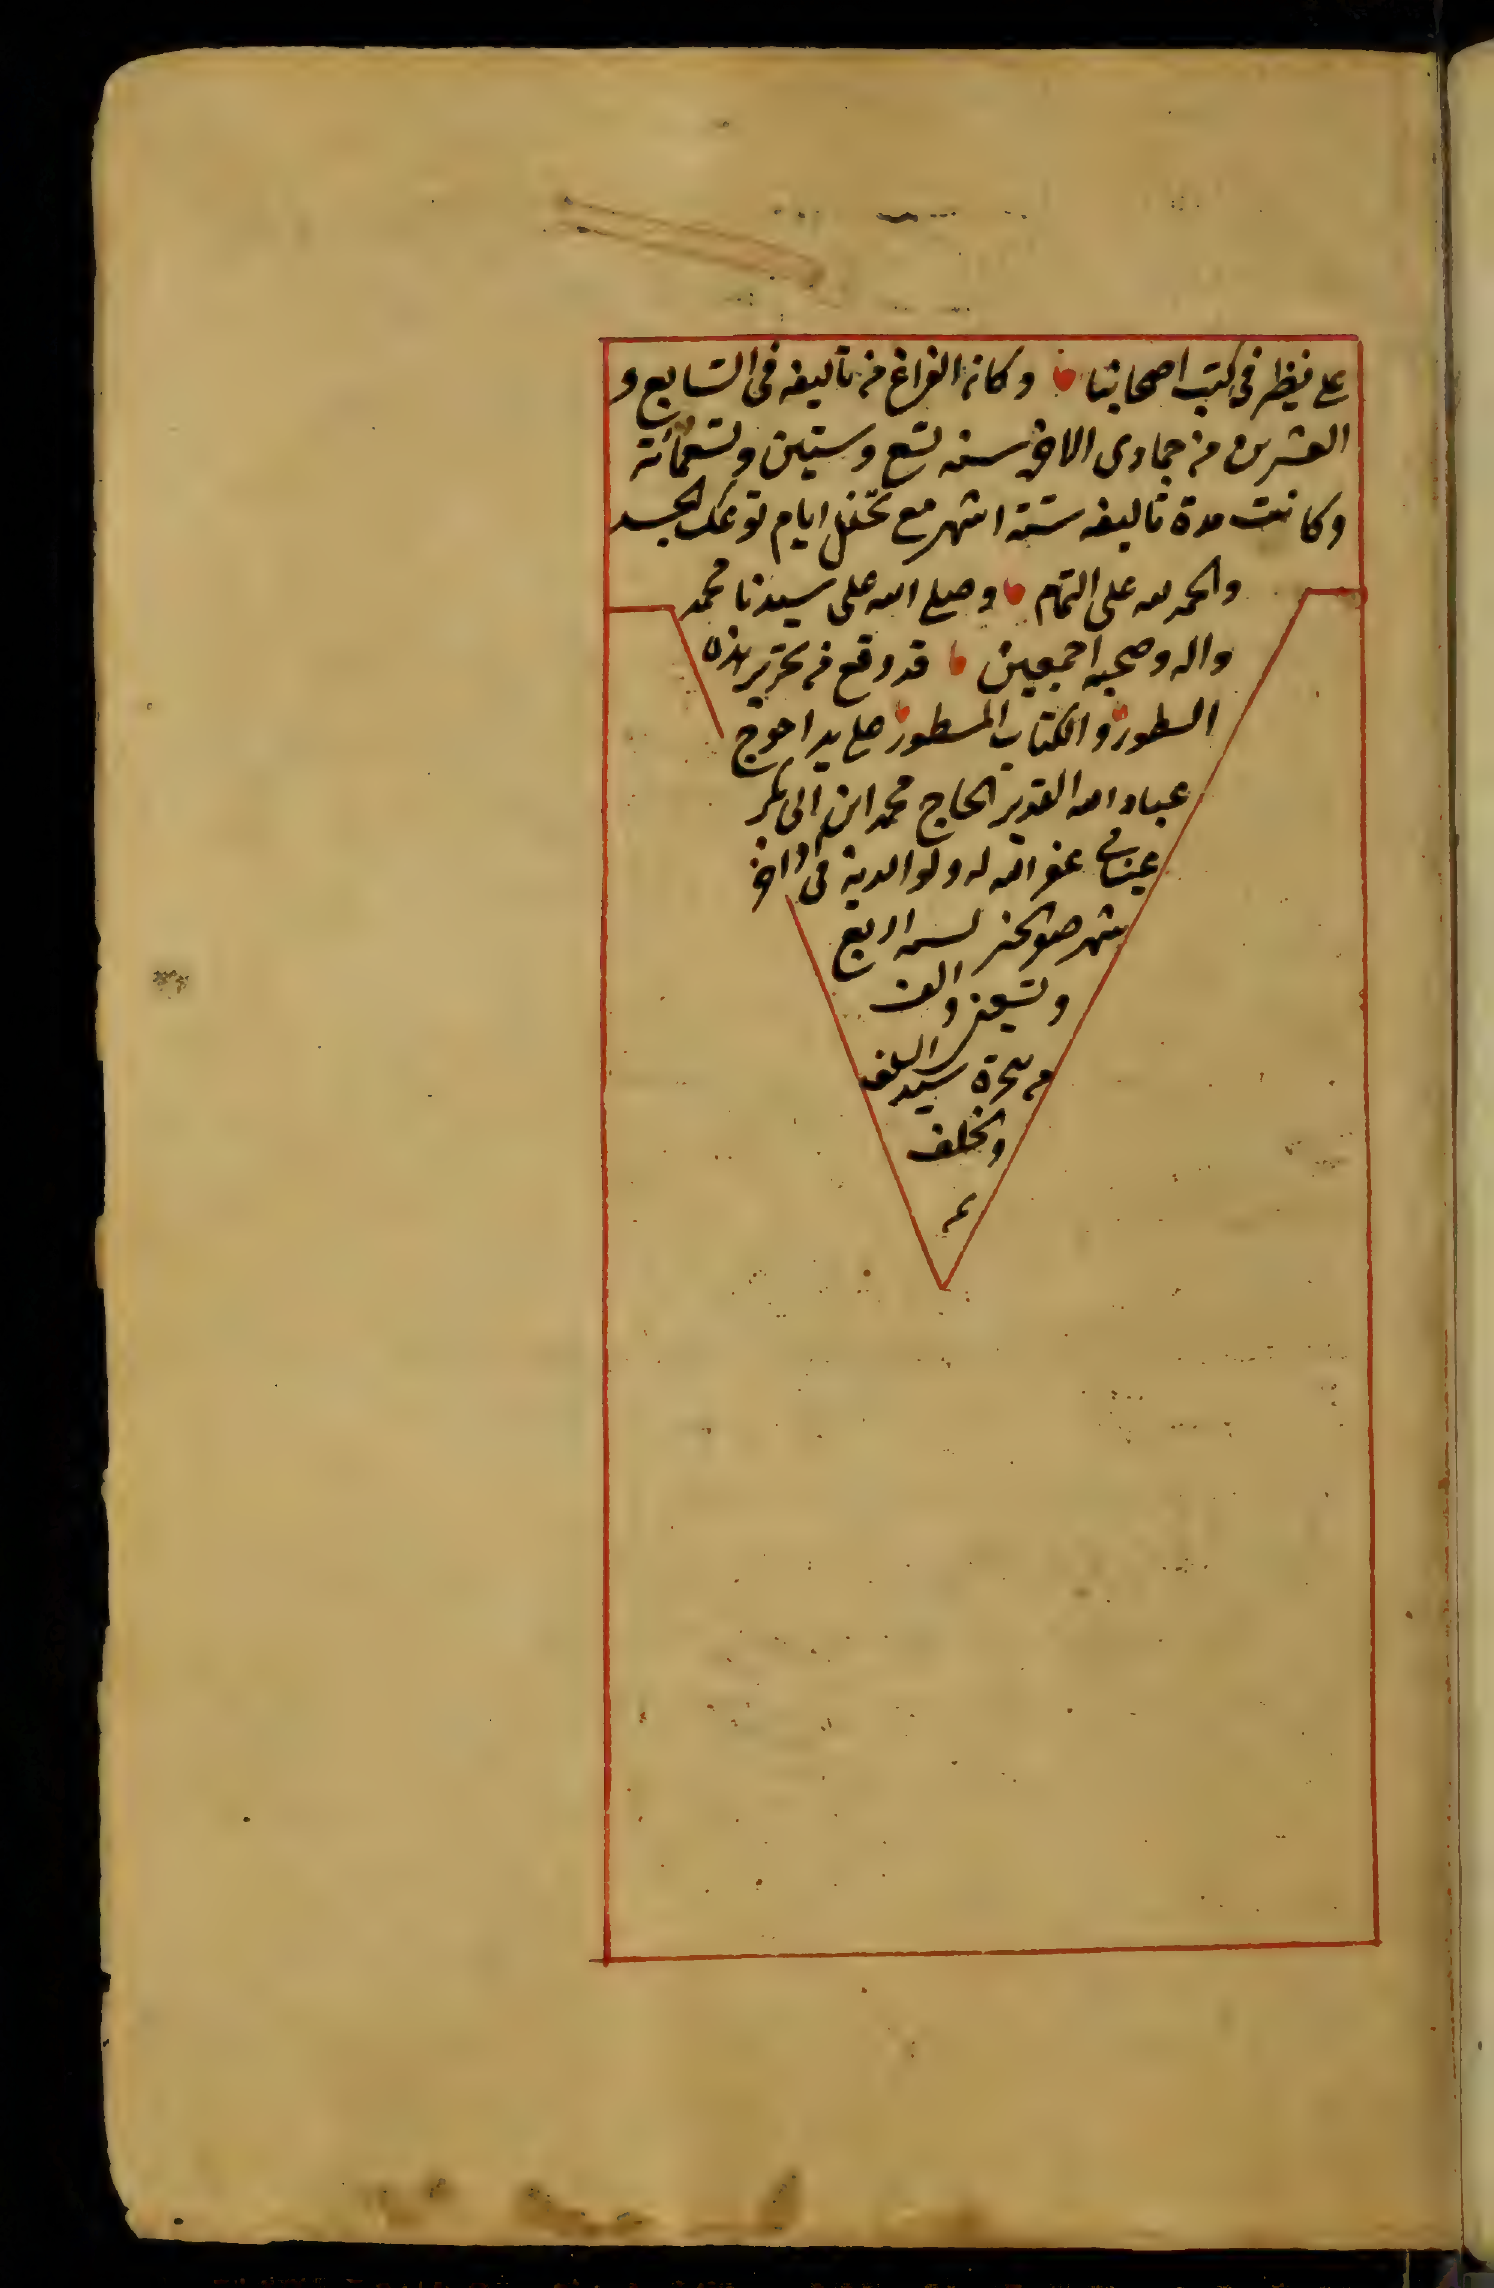 على نظر فى كتب اصحابنا وكان الفراغ من تاليفه فى السابع و
العشرين من جمادى الاخر سنه تسع وستين وتسعمائة
وكانت مدة تاليفه ستة اشهر مع تخلل ايام توعك الجسد
والحمد لله على التمام وصلى الله على سيدنا محمد
واله وصحبه اجمعين قد وقع من تحرير هذه
السطور والكتاب المسطور على يد احوج
عباد الله القدير الحاج محمد ابن ابى بكر
عفى الله له ولوالديه فى اواخر
شهر صفر الخير لسنه اربع
وتسعين والف
من هجرة سيد السلف
والخلف
م